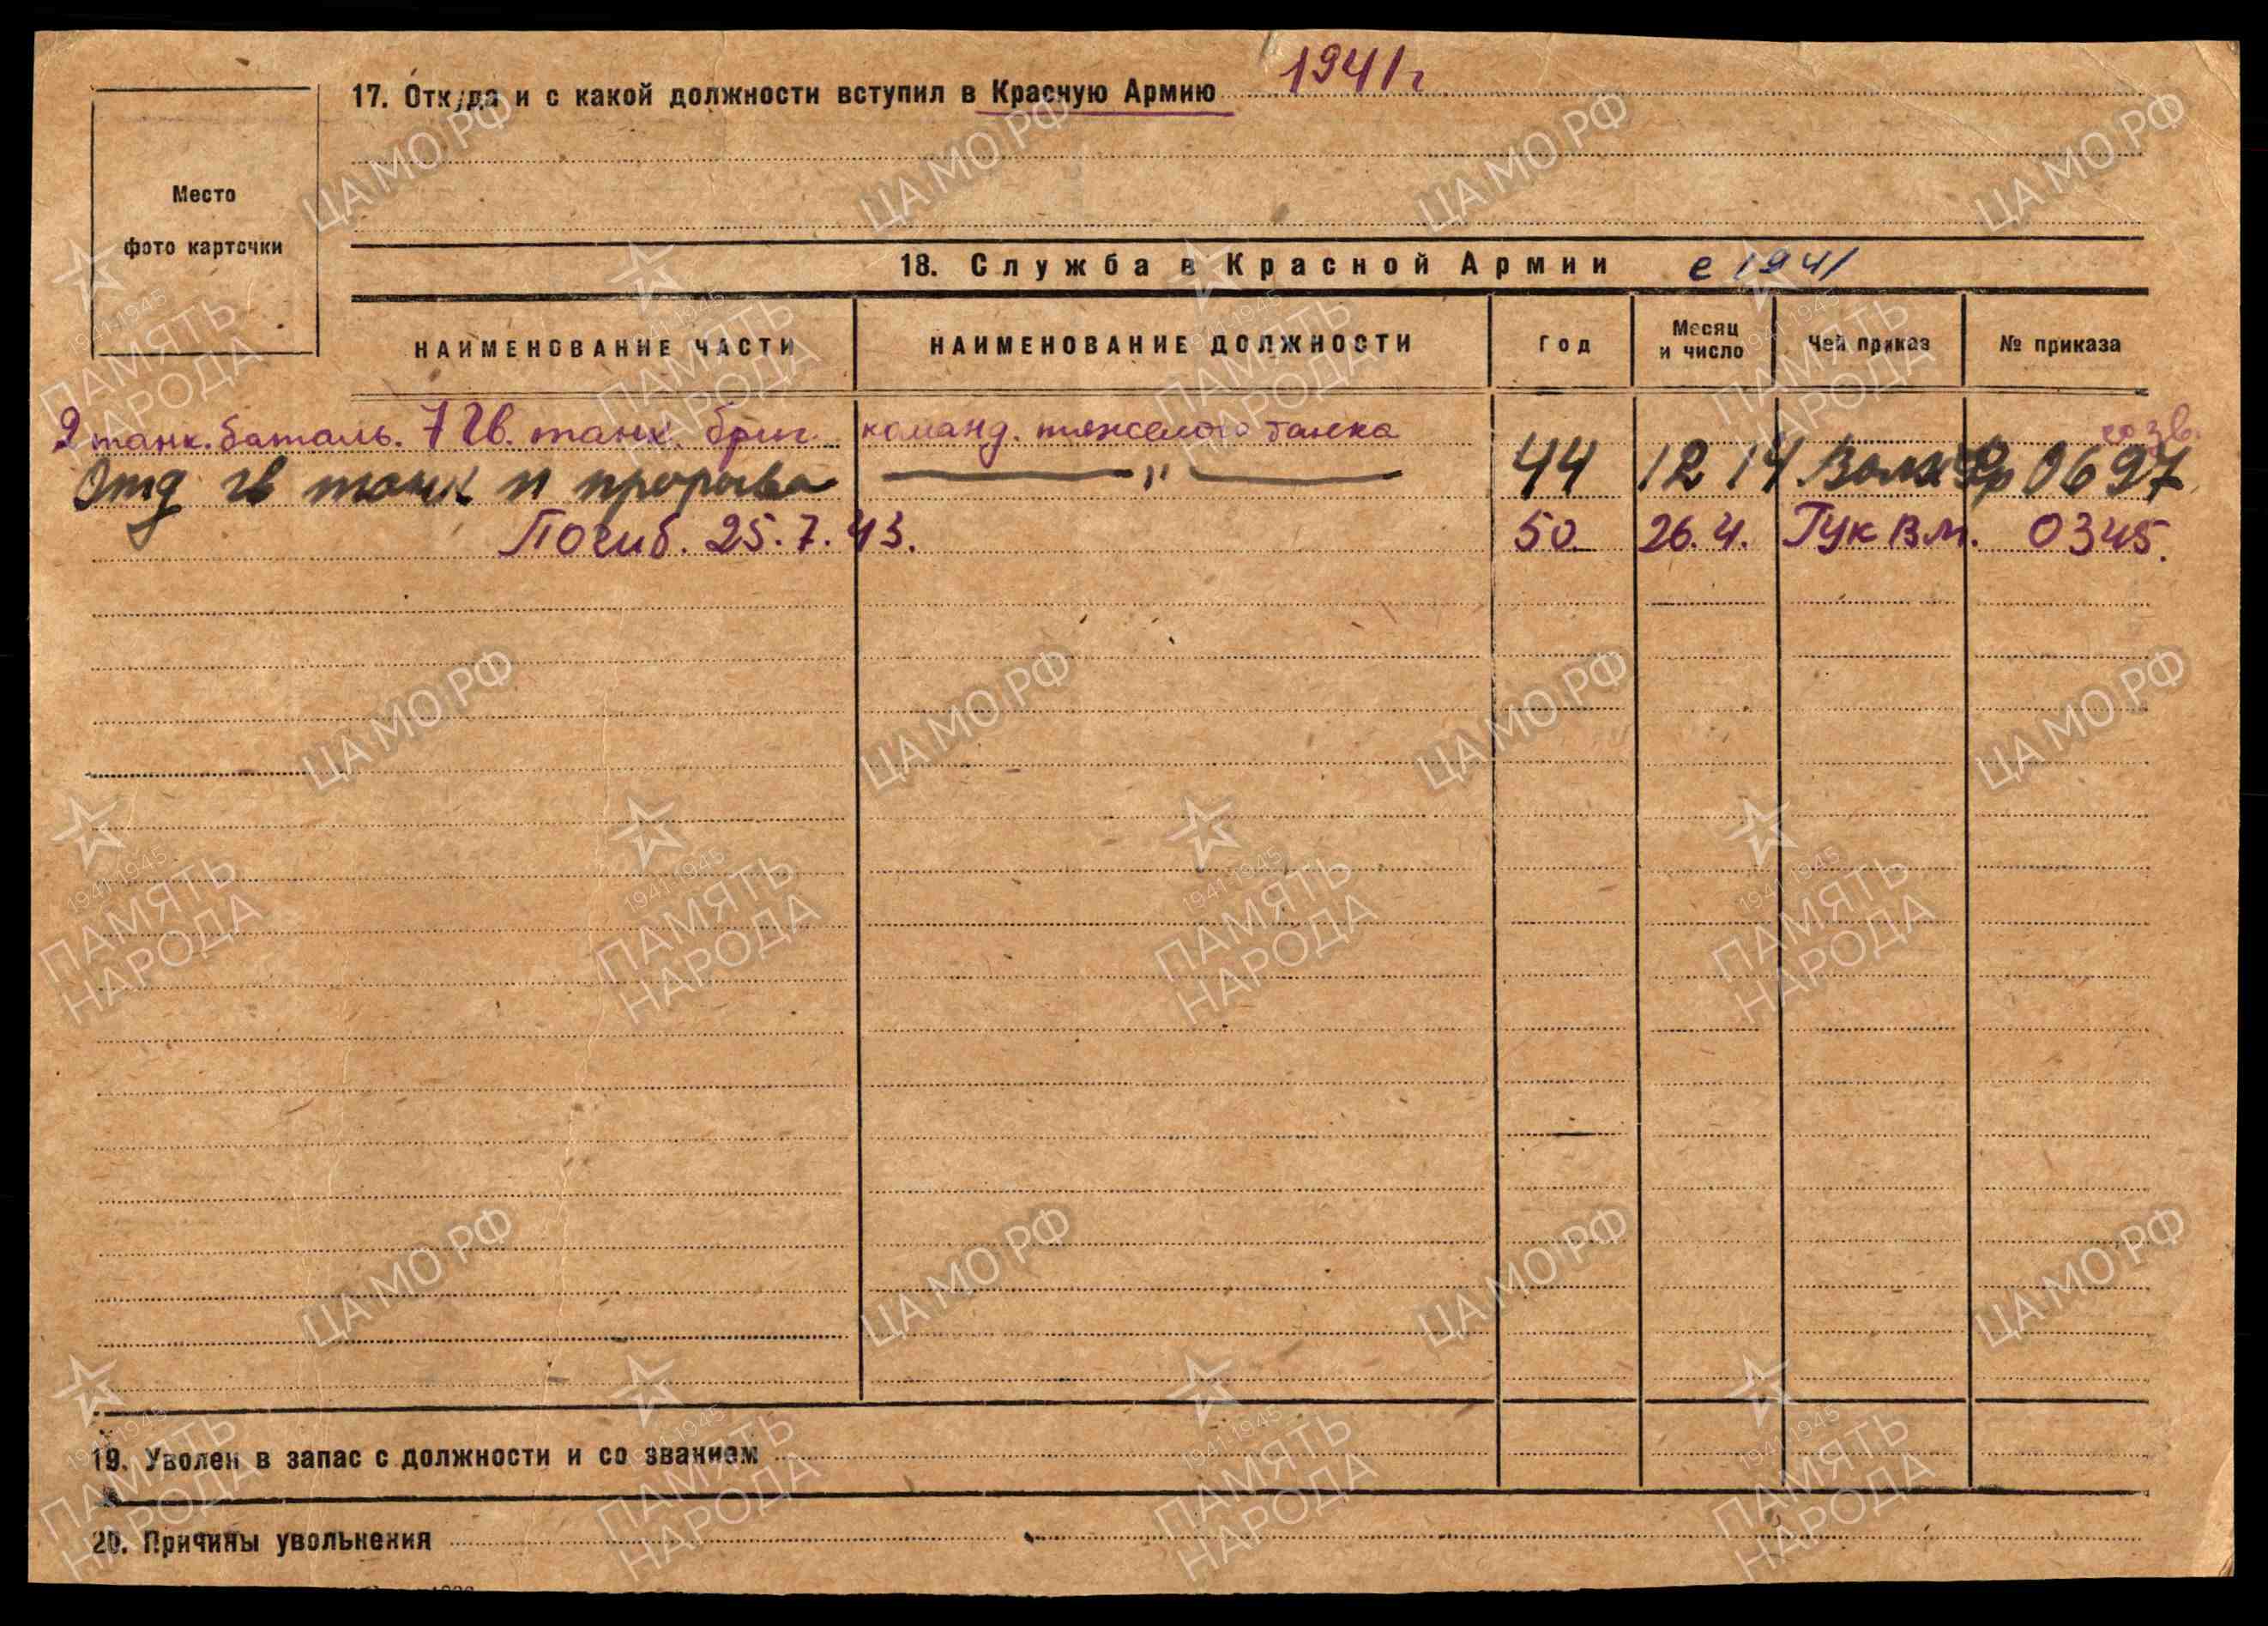 17. Откуда и с какой должности вступил в Красную Армию 1941 г
Место
фото карточки
18. Служба в Красной Армии с 1941
НАИМЕНОВАНИЕ ЧАСТИ НАИМЕНОВАНИЕ ДОЛЖНОСТИ Год Месяц и число Чей приказ № приказа
2 танк. баталь. 7 Гв. танк. бриг. команд. тяжелого танка со зв.
Отд гв танк п прорыва —— " —— 44 12 14 Волх Фр 0697
Погиб. 25.7.43. 50. 26.4. ГУК В.М. 0345.
19. Уволен в запас с должности и со званием
20. Причины увольнения
ЦАМО.РФ
1941-1945
ПАМЯТЬ
НАРОДА